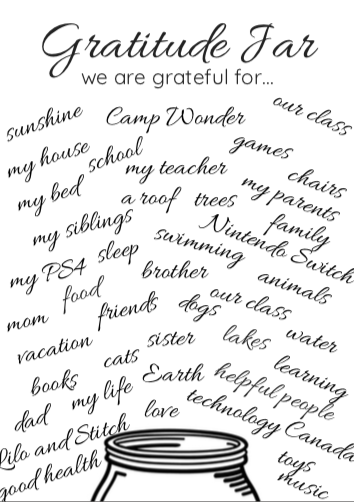 Gratitude Jar
we are grateful for...
sunshine
Camp Wonder
our class
my house
school
my teacher
games
chairs
my bed
a roof
trees
my parents
my siblings
swimming
Nintendo Switch
family
my PS4
sleep
brother
animals
food
mom
friends
dogs
our class
vacation
cats
sister
lakes
water
books
my life
Earth
helpful people
learning
dad
love
technology
Canada
Lilo and Stitch
good health
toys
music